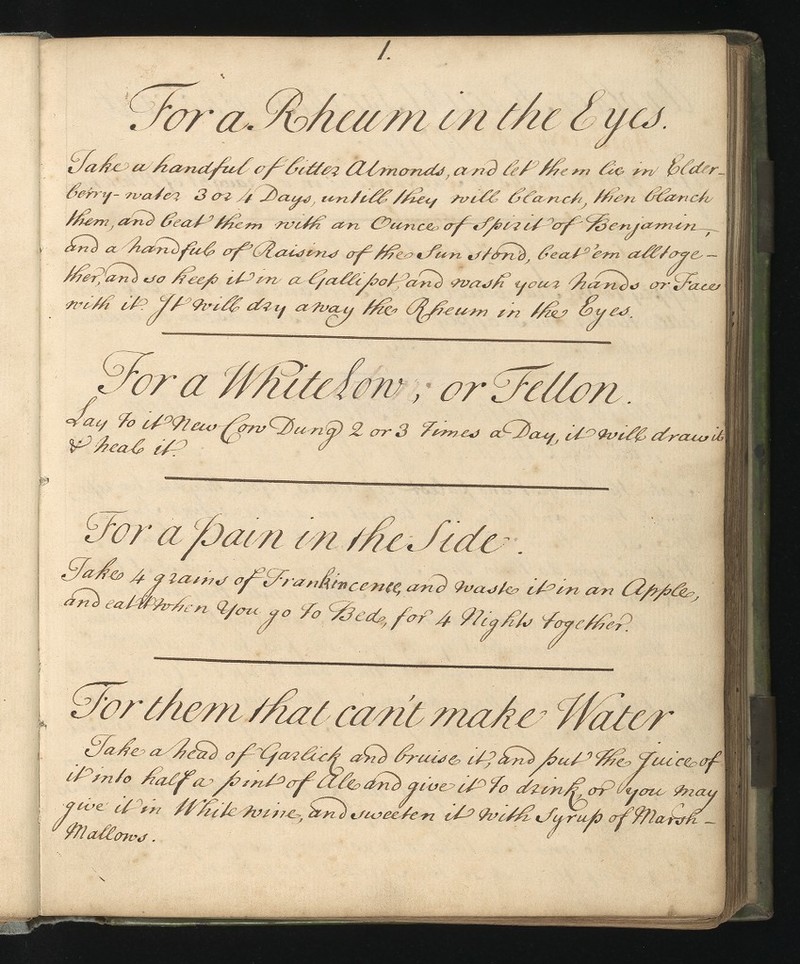 1.
For a Rheum in the Eyes.
Take a handful of bitter Almonds, and let them lie in Elder-
berry-water 3 or 4 Days, untill they will blanch, then blanch
them, and beat them with an Ounce of Spirit of Benjamin,
and a handful of Raisins of the Sun stond, beat 'em alltoge-
ther, and so keep it in a Gallipot, and wash your hands or Face
with it. It will dry away the Rheum in the Eyes.
For a White Low, or Fellon.
Lay to it New Cow Dung 2 or 3 times a Day, it will draw it
& heal it.
For a pain in the Side.
Take 4 grains of Frankincence, and waste it in an Apple,
and eat it when You go to Bed, for 4 Nights together.
For them that can't make Water
Take a head of Garlick and bruise it, and put the Juice of
it into half a pint of Ale and give it to drink, or you may
give it in White wine, and sweeten it with Syrup of Marsh-
Mallows.